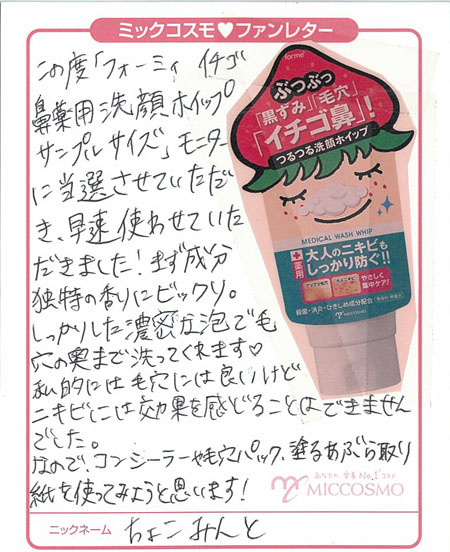 ミックコスモ♥ファンレター
この度「フォーミィ イチゴ
鼻薬用洗顔ホイップ
サンプルサイズ」モニター
に当選させていただ
き、早速使わせていた
だきました!まず成分
独特の香りにビックリ。
しっかりした濃密な泡で毛
穴の奥まで洗ってくれます♡
私的には毛穴には良いけど
ニキビには効果を感じることはできません
でした。
なので、コンシーラーや毛穴パック、塗るあぶら取り
紙を使ってみようと思います!
forme
ぶつぶつ
「黒ずみ」「毛穴」
「イチゴ鼻」!
つるつる洗顔ホイップ
MEDICAL WASH WHIP
薬用
大人のニキビも
しっかり防ぐ!!
やさしく
集中ケア!
殺菌・消炎・ひきしめ成分配合
MICCOSMO
あなたの、笑顔No.1コスメ
MICCOSMO
ニックネーム ちょこみんと